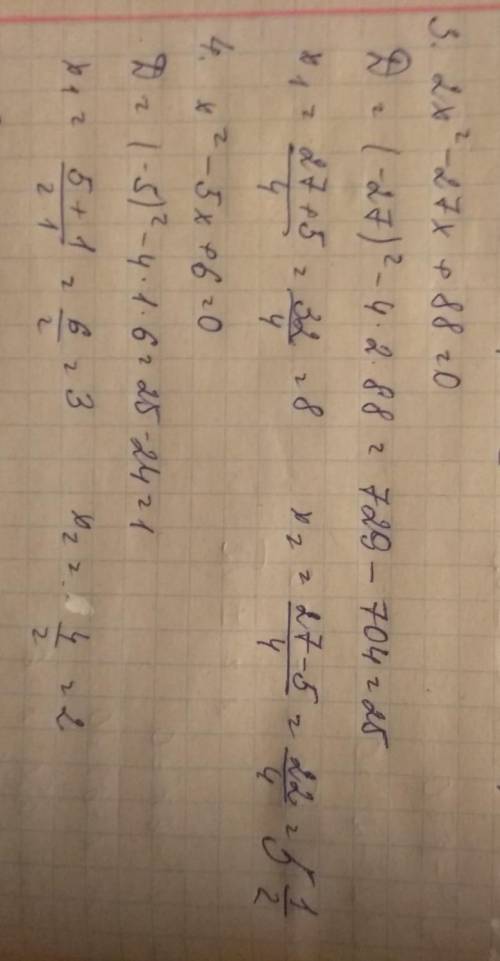 3. 2x² - 27x + 88 = 0
D = (-27)² - 4·2·88 = 729 - 704 = 25
x1 = (27+5)/4 = 32/4 = 8   x2 = (27-5)/4 = 22/4 = 5 1/2
4. x² - 5x + 6 = 0
D = (-5)² - 4·1·6 = 25 - 24 = 1
x1 = (5+1)/2 1 = 6/2 = 3   x2 = 4/2 = 2